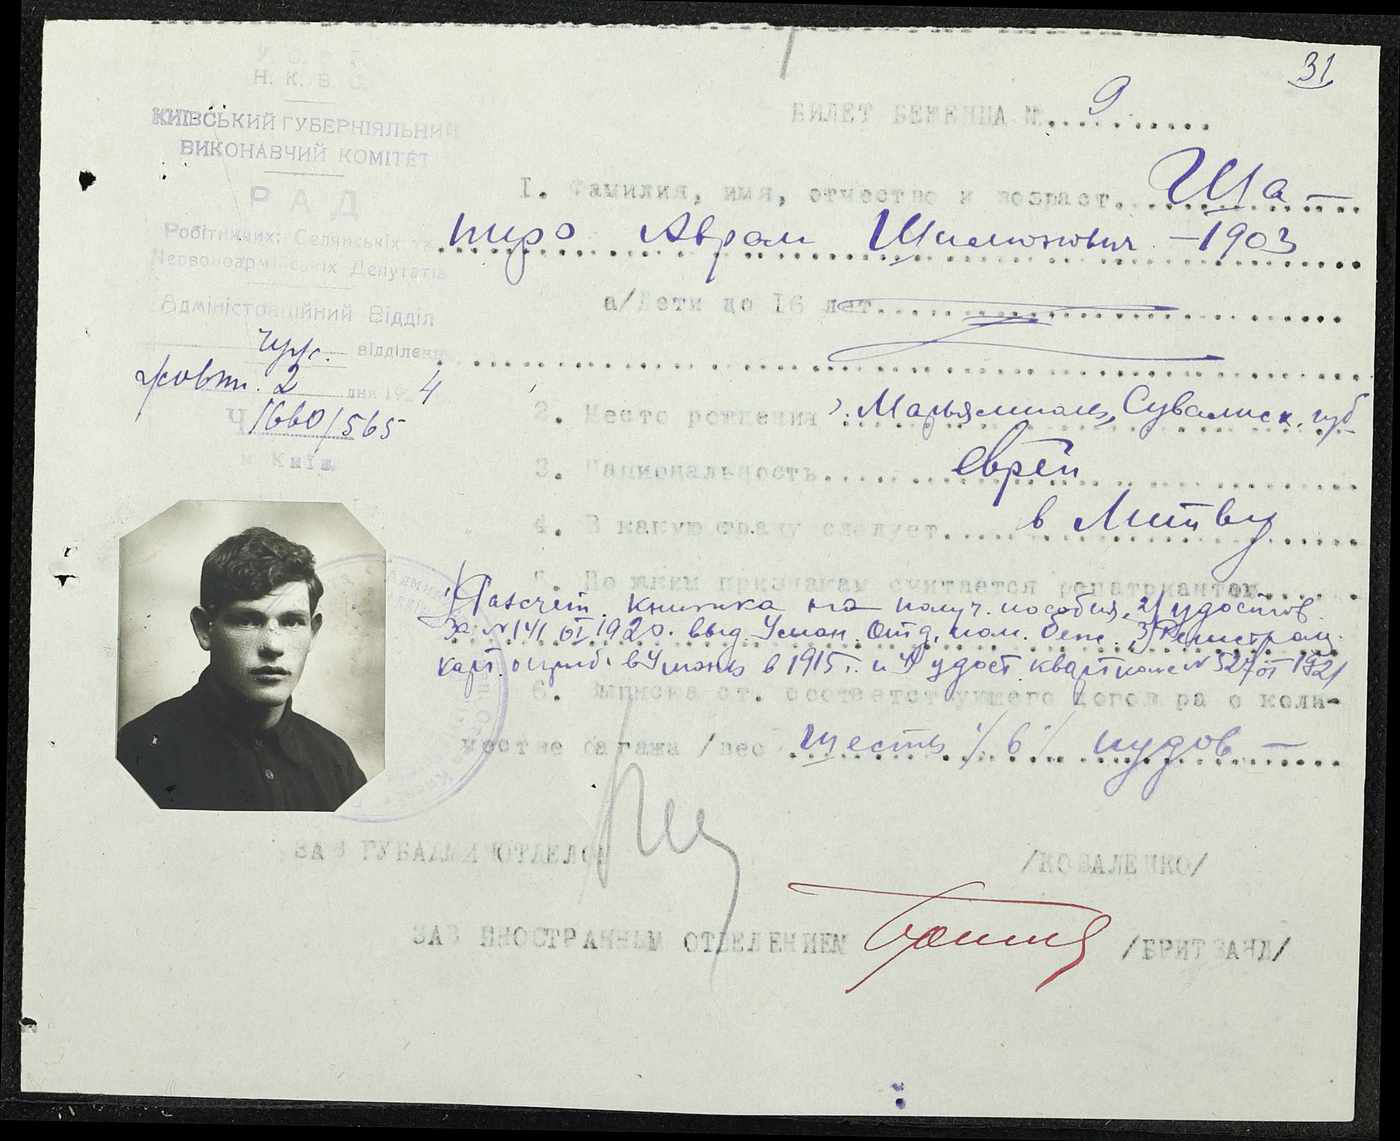 31
У. С. Р. Р.
Н. К. В. С.
КИЇВСЬКИЙ ГУБЕРНІЯЛЬНИЙ
ВИКОНАВЧИЙ КОМІТЕТ
РАД
Робітничих, Селянських та
Червоноармійських Депутатів
Адміністраційний Відділ
відділення
жовт. 2 дня 1924
Ч 1660/565
м. Київ
БИЛЕТ БЕЖЕНЦА №. 9
I. Фамилия, имя, отчество и возраст. Ша-
пиро Аврам Шимонович - 1903
а/Дети до 16 лет
2. Место рождения г. Марьямполь, Сувалкск. губ
3. Национальность еврей
4. В какую страну следует в Литву
5. По каким признакам считается репатриантом
1) Расчетн. книжка на получ. пособия, 2) удостов.
за №141 от 1920. выд. Уман. отд. пом. беж. 3) Регистрац.
карт. о приб. в Умань в 1915 г. и 4) удост. кварт № 527 от 1921
6. Выписка от. соответствующего договора о коли-
честве багажа /вес шесть /6/ пудов -
ЗАВ ГУБАДМИНОТДЕЛОМ /КОВАЛЕНКО/
ЗАВ ИНОСТРАННЫМ ОТДЕЛЕНИЕМ /БРИТВАНД/